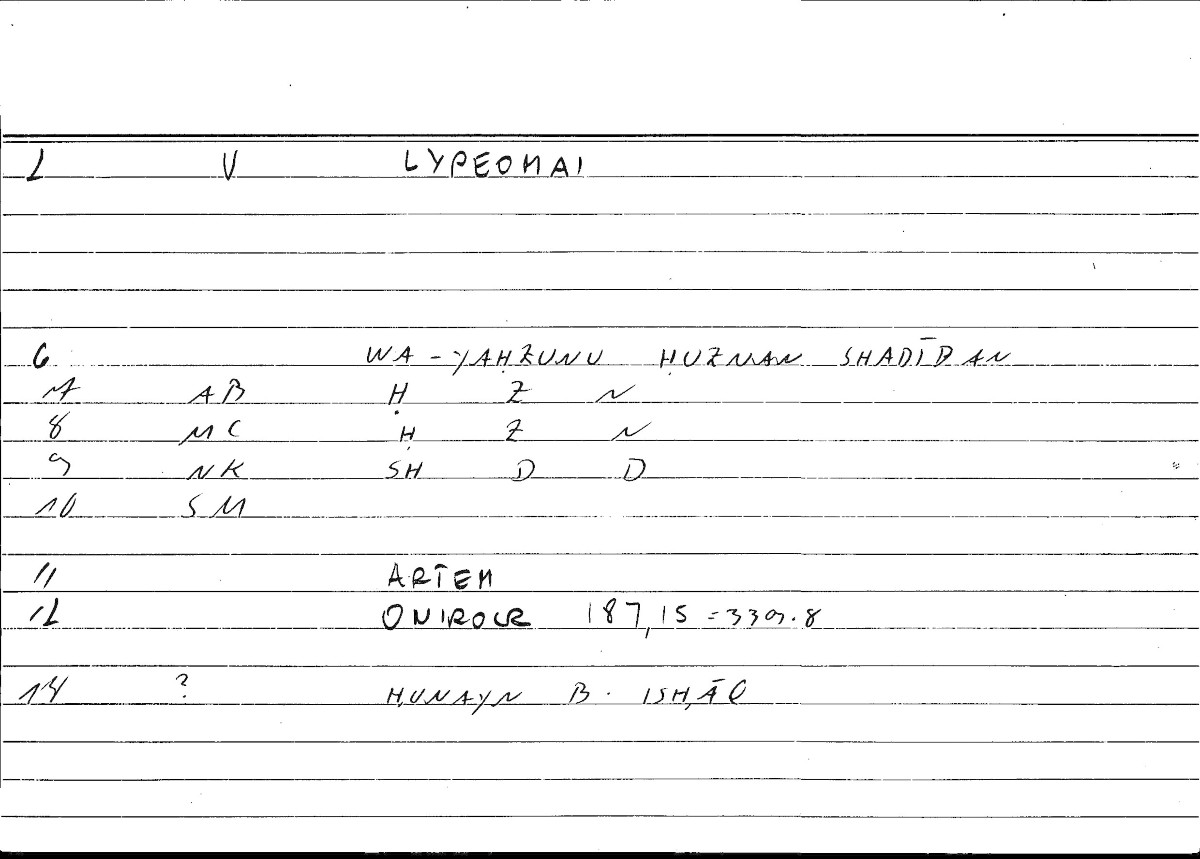 2 V LYPEOMAI
6 WA-YAḤZUNU ḤUZNAN SHADĪDAN
7 AB Ḥ Z N
8 MC Ḥ Z N
9 NK SH D D
10 SM
11 ARTEM
12 ONIROCR 187,15 = 339.8
14 ? ḤUNAYN B. ISḤĀQ